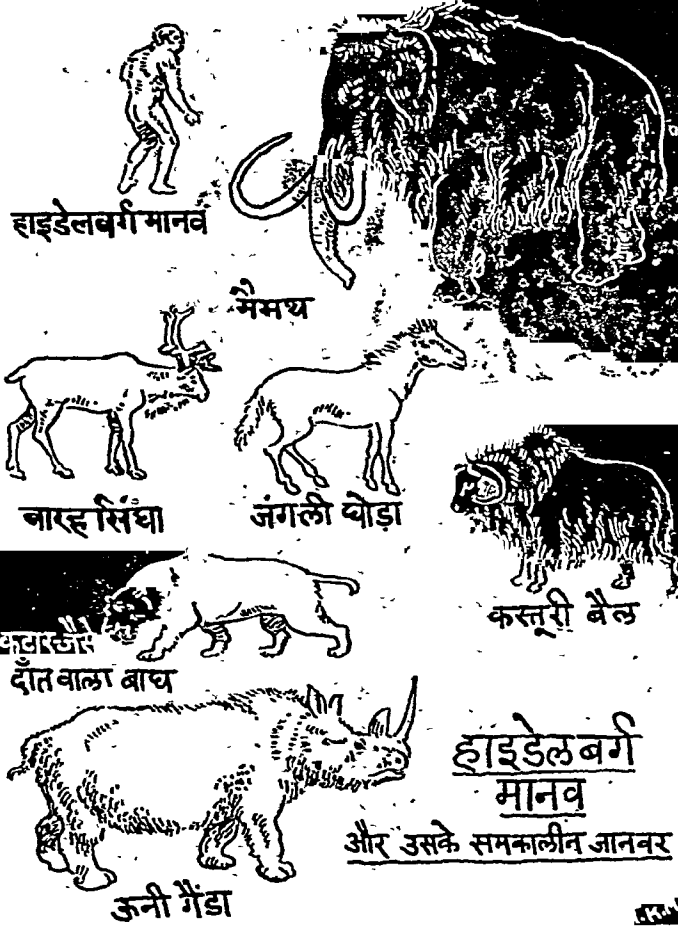 हाइडेलबर्ग मानव
मैमथ
बारहसिंघा
जंगली घोड़ा
कस्तूरी बैल
दाँत वाला बाघ
हाइडेलबर्ग
मानव
और उसके समकालीन जानवर
ऊनी गैंडा